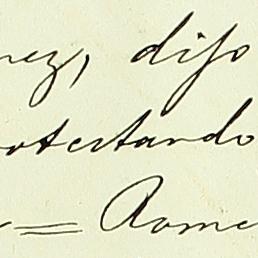 nez, dijo
otestando
= Rome